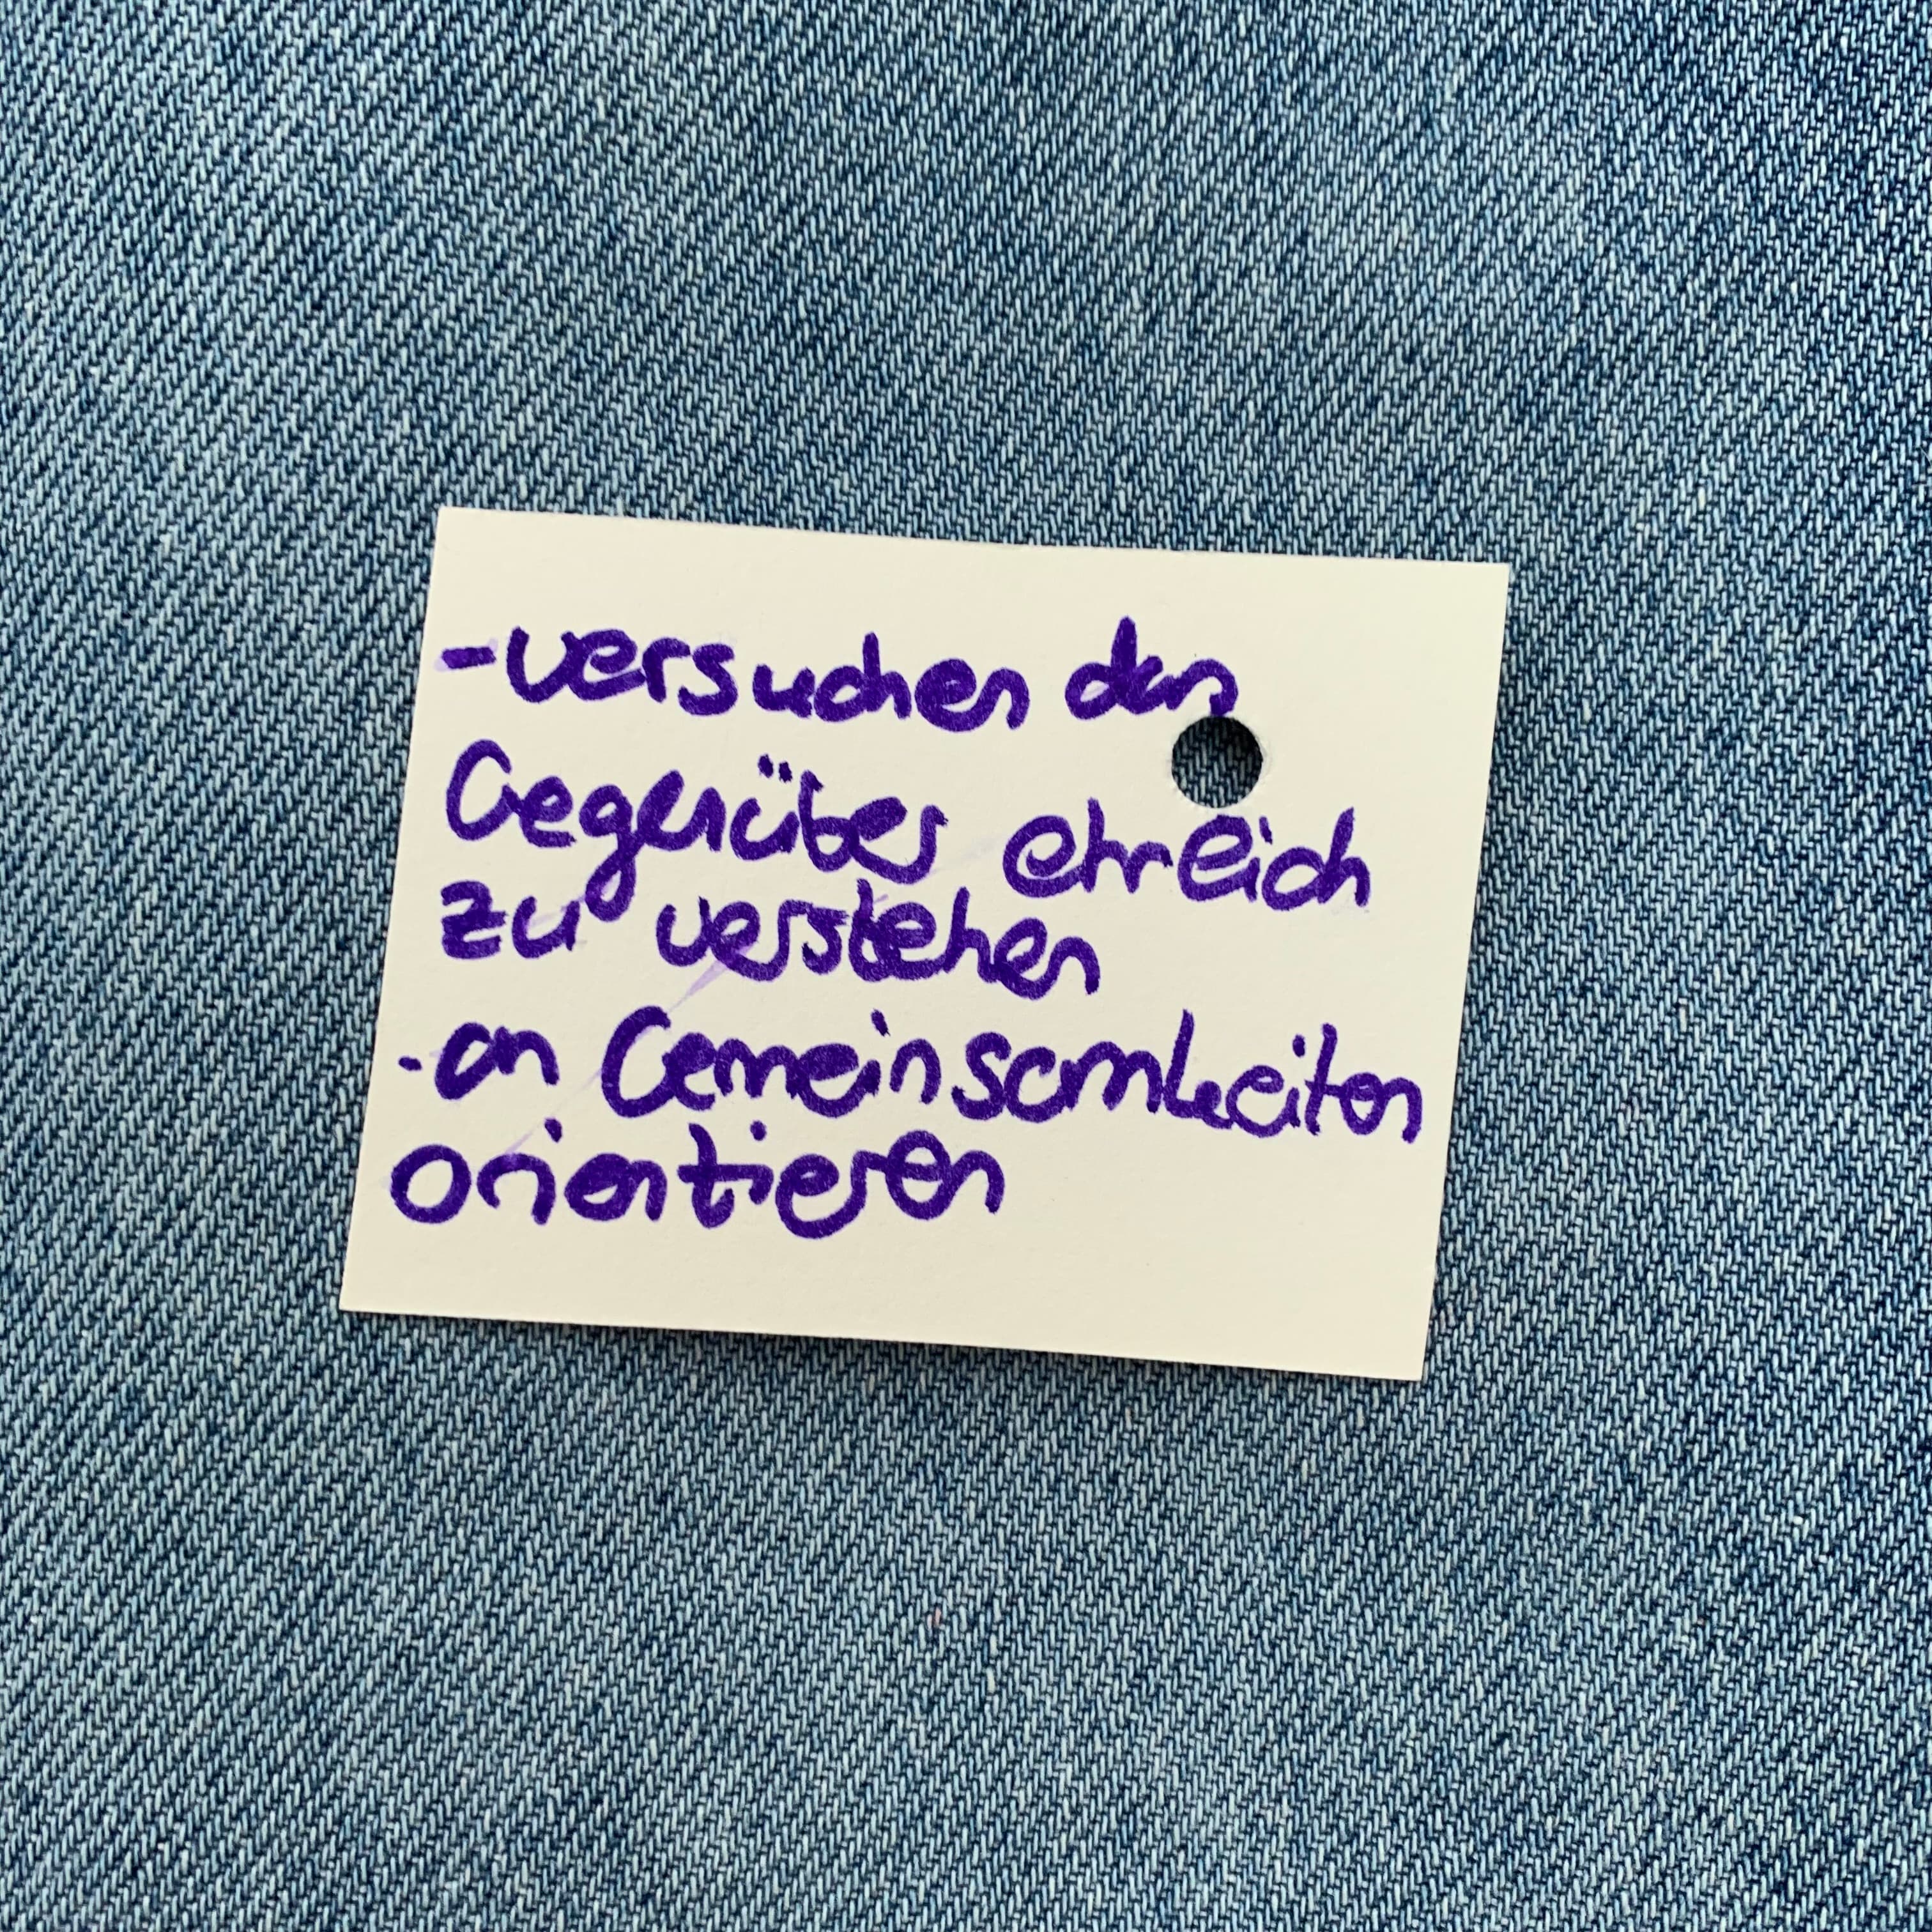 -versuchen das
Gegenüber ehreich
zu verstehen
-an Gemeinsamkeiten
orientieren